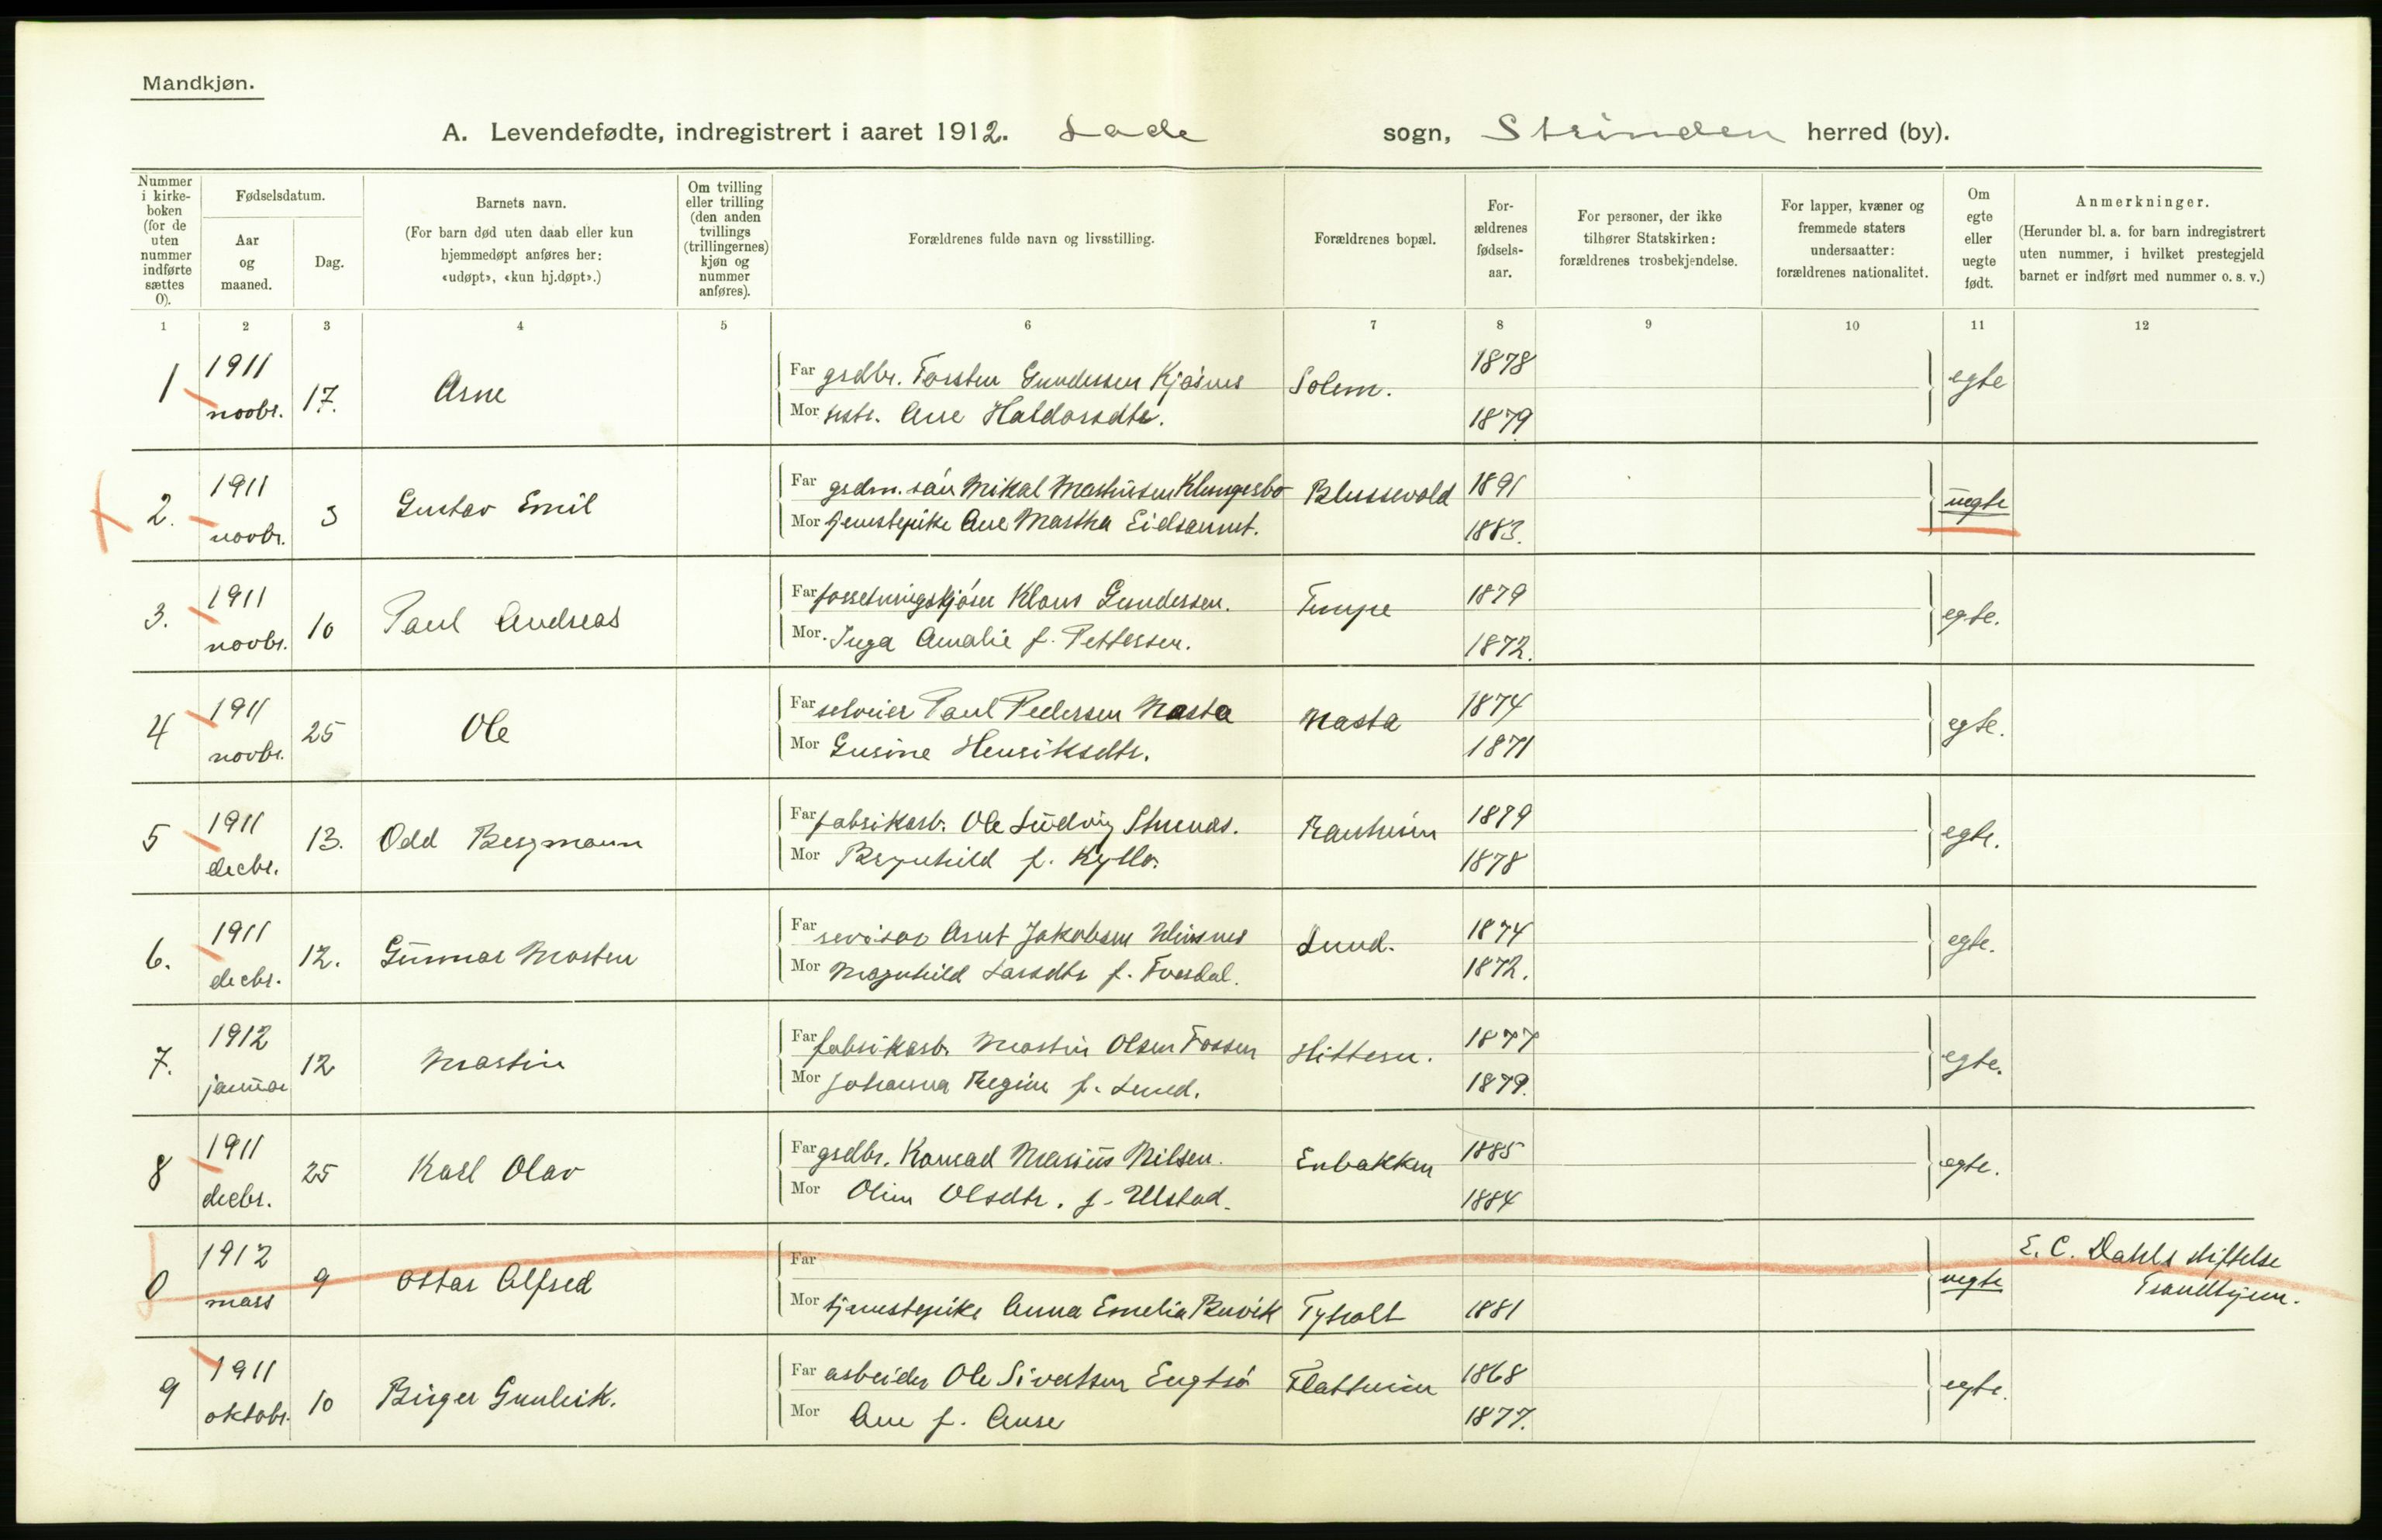 Mandkjøn.
A. Levendefødte, indregistrert i aaret 1912. Lade sogn, Strinden herred (by).
Nummer i kirkeboken (for de uten nummer indførte sættes 0).
Fødselsdatum.
Aar og maaned.
Dag.
Barnets navn.
(For barn død uten daab eller kun hjemmedøpt anføres her: «udøpt», «kun hj.døpt».)
Om tvilling eller trilling (den anden tvillings (trillingernes) kjøn og nummer anføres).
Forældrenes fulde navn og livsstilling.
Forældrenes bopæl.
Forældrenes fødselsaar.
For personer, der ikke tilhører Statskirken: forældrenes trosbekjendelse.
For lapper, kvæner og fremmede staters undersaatter: forældrenes nationalitet.
Om egte eller uegte født.
Anmerkninger.
(Herunder bl. a. for barn indregistrert uten nummer, i hvilket prestegjeld barnet er indført med nummer o. s. v.)
1 2 3 4 5 6 7 8 9 10 11 12
1 1911 novbr. 17. Arne
Far grdbr. Torsten Gundersen Kjøsnes Solem. 1878 egte
Mor hstr. Ane Haldorsdtr. 1879
2. 1911 novbr. 3 Gustav Emil
Far grdm. søn Mikal Mathisen Blussevold 1891 uegte
Mor tjenestepike Ane Martha Eidsaunet. 1883.
3. 1911 novbr. 10 Paul Andreas
Far forretningskjører Klaus Gundersen. Tempe 1879 egte.
Mor. Inga Amalie f. Pettersen. 1872.
4 1911 novbr. 25 Ole
Far selveier Paul Pedersen Nasta Nasta 1874 egte.
Mor Gusine Henriksdtr. 1871
5 1911 decbr. 13. Odd Bergmann
Far fabrikarb. Ole Ludvig Stuenæs. Ranheim 1879 egte.
Mor Bergnhild f. Kyllo. 1878
6. 1911 decbr. 12. Gunnar Morten
Far revisor Arnt Jakobsen Lund. 1874 egte.
Mor Magnhild Larsdtr f. 1872.
7. 1912 januar 12 Martin
Far fabrikarb. Martin Olsen Fossen Hitteren. 1877 egte.
Mor Johanna Regine f. Lund. 1879.
8 1911 decbr. 25 Karl Olav
Far grdbr. Konrad Marius Nilsen. Enbakken 1885 egte.
Mor Oline Olsdtr. f. Ulstad. 1884
0 1912 mars 9 Ottar Alfred
Far uegte E. C. Dahls stiftelse
Mor tjenestepike Anna Emelia Buvik Tyholt 1881 Trondhjem.
9 1911 oktobr. 10 Birger Gunleik.
Far arbeider Ole Sivertsen Engtrø Flatheim 1868 egte.
Mor Ane f. Aune 1877.